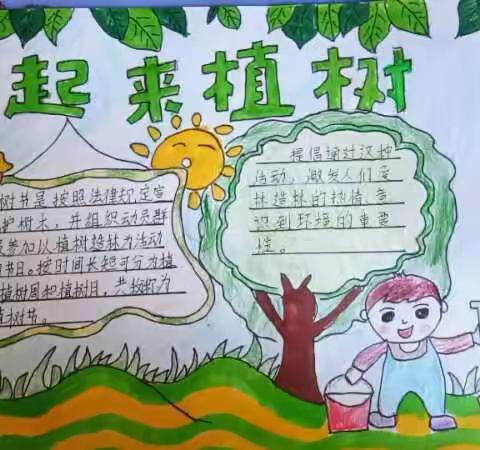 起来植树
树节是按照法律规定宣
护树木，并组织动员群
参加以植树造林为活动
节日。按时间长短可分为植
植树周和植树月，共称为
植树节。
提倡通过这种
活动，激发人们爱
林造林的热情、意
识到环境的重要
性。